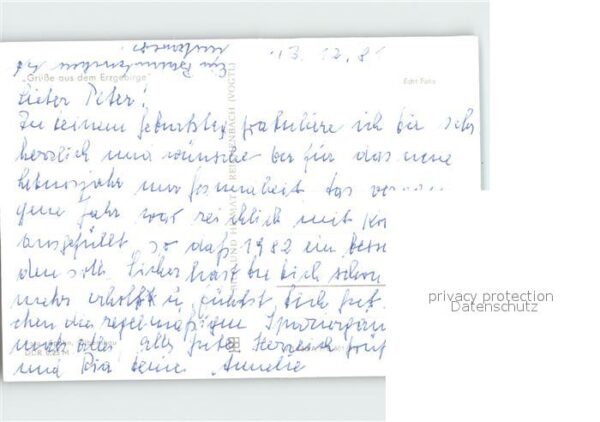 13.12.81
"Grüße aus dem Erzgebirge"
Echt Foto
Lieber Peter!
Zu deinem Geburtstag gratuliere ich dir sehr
herzlich und wünsche dir für das neue
Lebensjahr nur Gesundheit. Das vergan
gene Jahr war reichlich mit
ausgefüllt, so daß 1982 ein besse
den soll. Sicher hast du dich schon
mehr erholt u. fühlst dich gut.
chen die regelmäßigen Spaziergän
noch alles alles Gute. Herzlich grüßt
DDR 0,25 M
und Pia deine Annelie
UND HEIMAT REICHENBACH (VOGTL)
privacy protection
Datenschutz